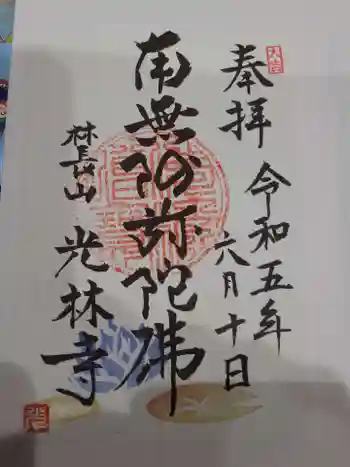 奉拝
令和五年
六月十日
南無阿弥陀佛
林昌山
光林寺